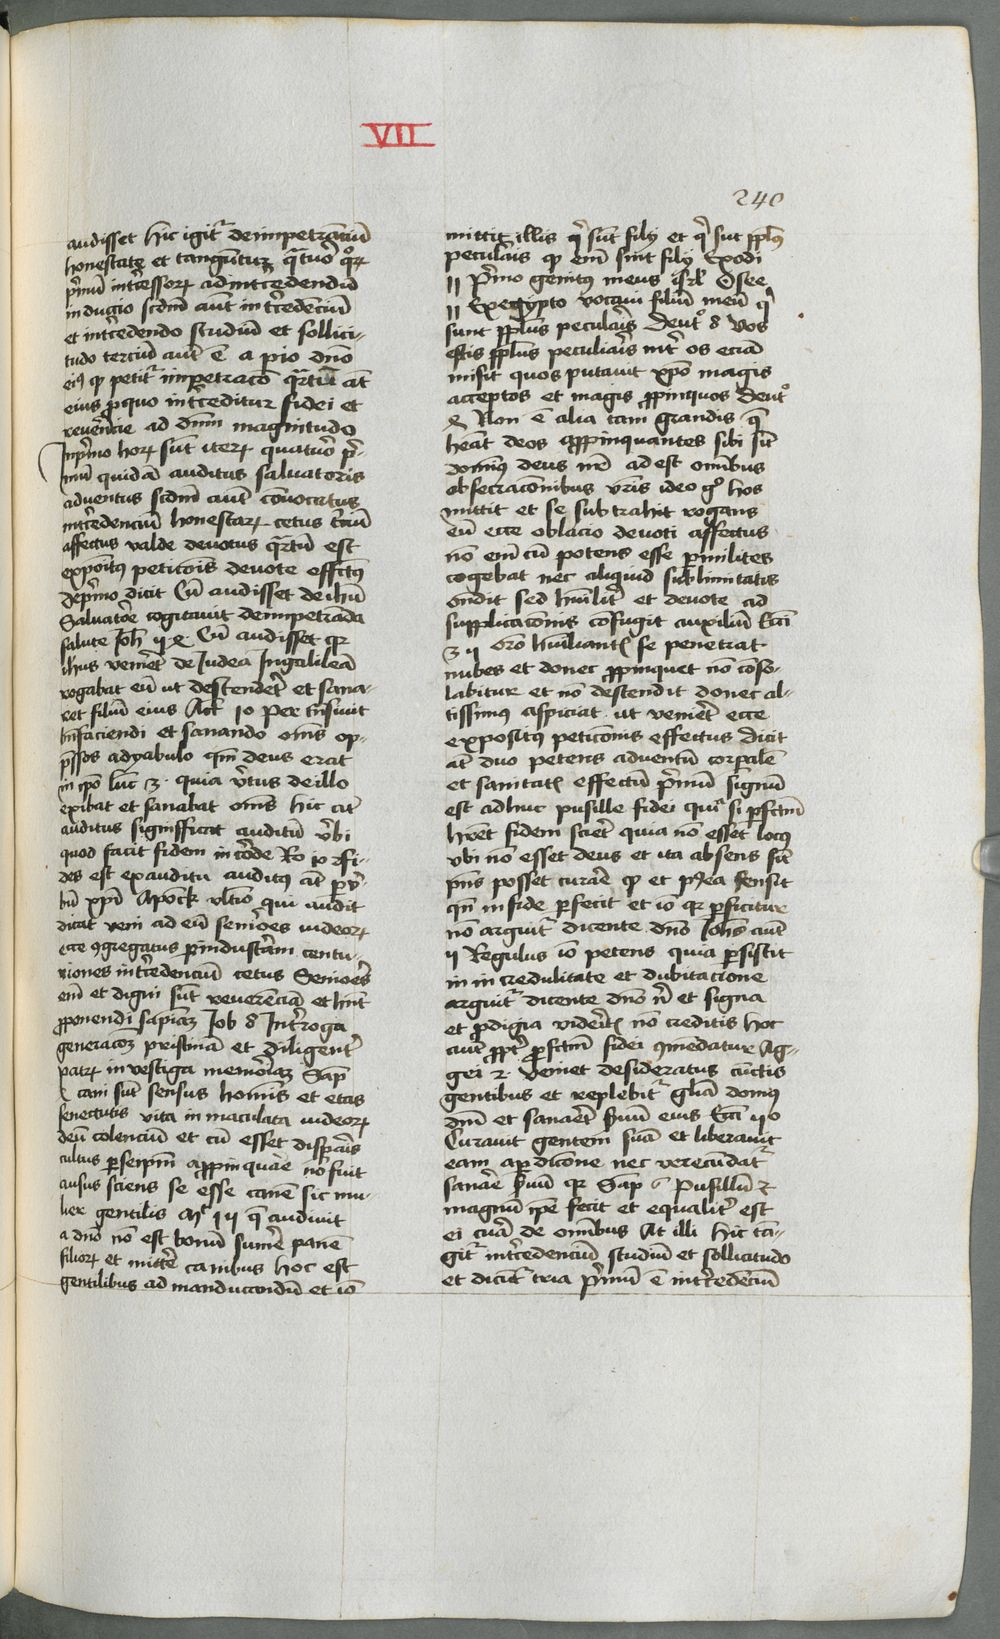 VII
240
audisset hic igitr̄ de impetranciū
honestate et tangūtur qͣtuor qͦꝝ
pͥmū intͥcessoꝝ ad intͥcedendū
inductio scdm̄ aut̄ intͥcedēciū
et intͥcedendo studiū et sollici-
tudo terciū aut̄ ē a pio dn̄o
eiꝰ qd̓ petitͥ impetracō qͣrtū at̄
eius ꝓ quo intͥceditur fidei et
reuerēcie ad dn̄m magnitudo
In pͥmo hoꝝ sūt iteꝝ quatuor pͥ-
mū quidā auditus saluatoris
aduentus scdm̄ aut̄ conuocatus
intͥcedenciū honestaꝝ cetus t̓ciū
affectus valde deuotus qͣrtū est
expoītꝰ peticōis deuote effectꝰ
De pͥmo dicit Cū audisset de ihū
Saluatore cogitauit de impetrāda
salute Joh̄ 4 Cū audisset qꝛ
ihus veniret de Judea In galileā
rogabat eū ut descenderet et sana-
ret filiū eius Act̄ 10 Per tnsiuit
bn̄faciendi et sanando om̄s op-
p̄ssos a dyabulo qm̄ deus erat
in ipō luc̄ quia v̓tus de illo
exibat et sanabat om̄s hic at̄
auditus significat auditū v̓bi
quod facit fidem in corde Ro 10 fi-
des est ex auditu auditꝰ at̄ ꝑ v̓-
bū xpī Apock vltīo qui audit
dicat veni ad eū seniores iudeoꝝ
ecce ꝯgregatus ꝑ industriam centu-
riones intͥcedenciū cetus Seniores
em̄ et digni sūt reuerēcia et hn̄t
ꝓponendi sapiam Job 8 Intͥroga
generacōꝫ pristinā et diligent̓
patꝝ inuestiga memoriaꝫ Sap̄
4 cani sūt sensus homīs et etas
senectutis vita inmaculata iudeoꝝ
deū colenciū et cū esset disparis
cultus ꝑ seipm̄ appinquāe nō fuit
ausus sciens se esse canē sic mu-
lier gentilis q̄ audiuit
a dn̄o nō est bonū sumē panē
filioꝝ et mittē canibus hoc est
gentilibus ad manducandū et iō
mittit illis qͥ sūt filij et qͥ sūt pplꝰ
peculiāis qd̓ em̄ sint filij Exodi
Pͥmo genitꝰ meus isrl̄ Osee
11 Ex egipto vocaui filiū meū qd̓
sunt pplꝰ peculiāis Deutͦ 8 Vos
estis pplꝰ peculiāis int̓ os eciā
misit quos putauit xpō magis
acceptos et magis ꝓpinquos Deutͦ
4 Non ē alia tam grandis q̄
heāt deos appinquantes sibi sic̄
dominꝰ deus nr̄ adest omībus
obsecracionibus vr̄is ideo gͦ hos
mittit et se subtrahit rogans
eū ecce oblacio deuoti affectus
nō em̄ cū potens esse ꝑ milites
cogebat nec aliquid sublimitatis
ondit sed hūilit̓ et deuote ad
supplicacōnis confugit auxiliū Ecci
oro hūiliantis se penetrat
nubes et donec ꝓpinquet nō conso-
labitur et nō descendit donec al-
tissimus aspiciat ut veniret ecce
expositus peticōnis effectus dicit
at̄ duo petens aduentū corꝑalē
et sanitatis effectū pͥmū signū
est adhuc pusille fidei quia si ꝑfctm̄
hr̄et fidem sciret quia nō esset locꝰ
vbi nō esset deus et ita absens sic̄
pn̄s posset curare qd̓ et postea sensit
qn̄ in fide ꝑfecit et iō qꝛ ꝑficitur
nō arguitͥ dicente dn̄o Joh̄s aut̄
4 Regulus iō petens quia ꝑsistit
in incredulitate et dubitacione
arguitͥ dicente dn̄o nͥ et signa
et ꝓdigia videritis nō creditis hoc
aut̄ ppt̓ ꝑfctm̄ fidei ꝯmēdatur Ag-
gei 2 Veniet desideratus cūctis
gentibus et replebitͥ gl̄ia domus
dn̄i et sanaret s̓uū eius Ecci 40
Curauit gentem suā et liberauit
eam a ꝑdicōne nec verecūdatͥ
sanare s̓uū qꝛ Sap̄ 6 Pusillū et
magnū ipē fecit et equalit̓ est
ei cura de omībus At illi hic tā-
gitͥ intͥcedenciū studiū et sollicitudo
et dicūtͥ tria pͥmū ē intͥcedēciū